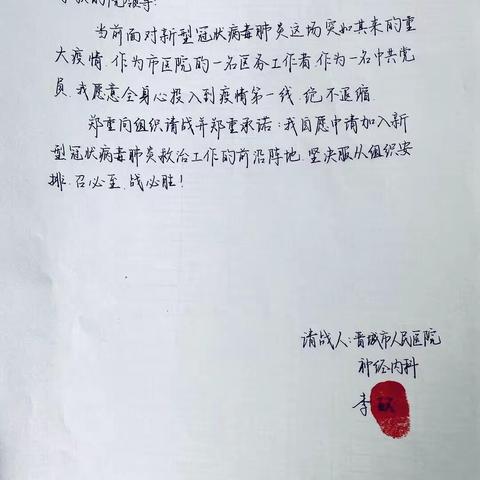 当前面对新型冠状病毒肺炎这场突如其来的重
大疫情.作为市医院的一名医务工作者.作为一名中共党
员.我愿意全身心投入到疫情第一线.绝不退缩.
郑重向组织请战并郑重承诺:我自愿申请加入新
型冠状病毒肺炎救治工作的前沿阵地.坚决服从组织安
排.召必至.战必胜!
请战人:晋城市人民医院
神经内科
李